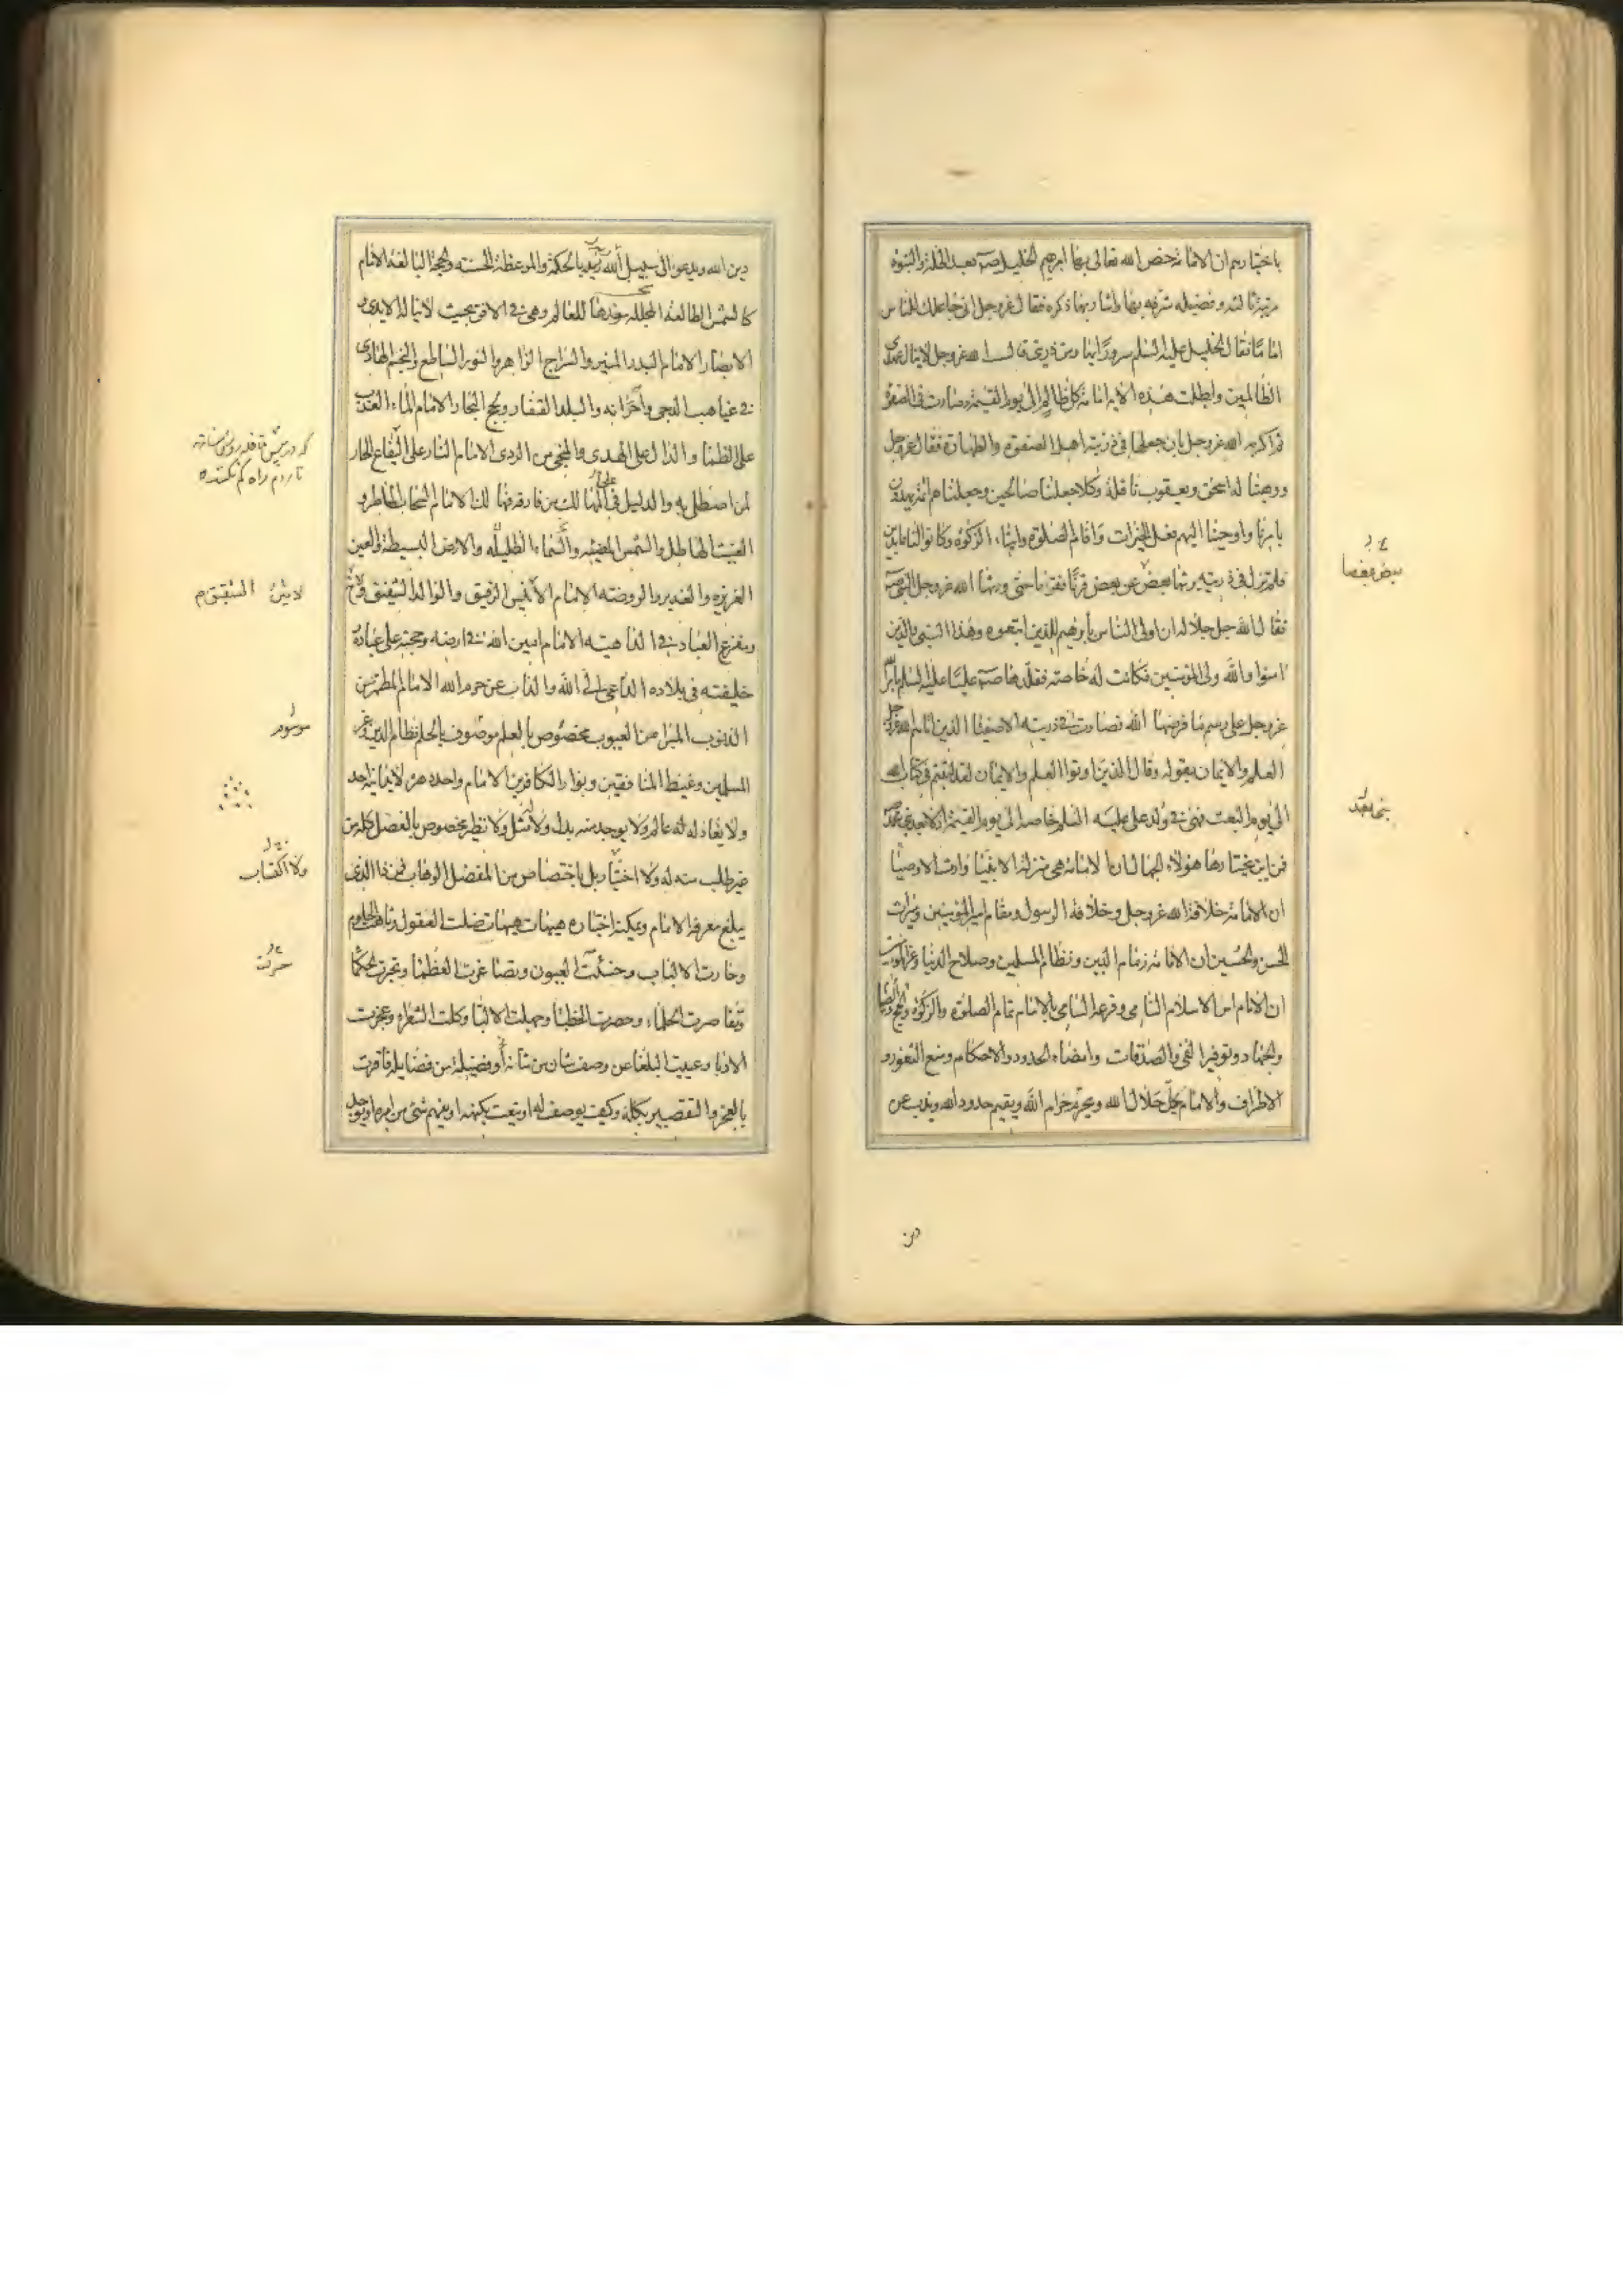 باختيارهم ان الامامة خص الله تعالى بها ابرهيم الخليل صـ بعد الخلة والنبوة
مرتبة ثالثة وفضيلة شرفه بها واشاد بها ذكره فقال عزوجل انى جاعلك للناس
اماما فقال الخليل عليه السلم سرورا بها ومن ذريتى قال الله عزوجل لا ينال عهدى
الظالمين وابطلت هذه الاية امامة كل ظالم الى يوم القيمة وصارت فى الصفوة
ثم اكرمه الله عزوجل بان جعلها فى ذريته اهل الصفوة والطهارة فقال عزوجل
ووهبنا له اسحق ويعقوب نافلة وكلا جعلنا صالحين وجعلناهم ائمة يهدون
بامرنا واوحينا اليهم فعل الخيرات واقام الصلوة وايتاء الزكوة وكانوا لنا عابدين
فلم تزل فى ذريته يرثها بعض عن بعض قرنا فقرنا حتى ورثها الله عزوجل النبى صـ
فقال الله جل جلاله ان اولى الناس بابرهيم للذين اتبعوه وهذا النبى والذين
امنوا والله ولى المؤمنين فكانت له خاصة فقلدها صـ عليا عليه السلم بامر الله
عزوجل على رسم ما فرضها الله فصارت فى ذريته الاصفيا الذين اتاهم الله عزوجل
العلم والايمان بقوله وقال الذين اوتوا العلم والايمان لقد لبثتم فى كتاب الله
الى يوم البعث فهى فى ولد على عليه السلم خاصة الى يوم القيمة اذ لا نبى بعد محمد صـ
فمن اين يختارها هؤلاء الجهال ان الامامة هى منزلة الانبيا وارث الاوصيا
ان الامامة خلافة الله عزوجل وخلافة الرسول ومقام امير المؤمنين وميراث
الحسن والحسين ان الامامة زمام الدين ونظام المسلمين وصلاح الدنيا وعز المؤمنين
ان الامام اس الاسلام النامى وفرعه السامى بالامام تمام الصلوة والزكوة والحج والصيام
والجهاد وتوفير الفئ والصدقات وامضاء الحدود والاحكام ومنع الثغور و
الاطراف والامام يحل حلال الله ويحرم حرام الله ويقيم حدود الله ويذب عن
دين
دين الله ويدعو الى سبيل الله ربه بالحكمة والموعظة الحسنه والحجة البالغة الامام
كالشمس الطالعة المجللة بنورها للعالم وهى فى الافق بحيث لا تناله الايدى و
الابصار الامام البدر المنير والسراج الزاهر والنور الساطع والنجم الهادى
فى غياهب الدجى واجواز البلد القفار ولجج البحار الامام الماء العذب
على الظما والدال على الهدى والمنجى من الردى الامام النار على اليفاع الحار
لمن اصطلى به والدليل فى المهالك من فارقه فهالك الامام السحاب الماطر و
الغيث الهاطل والشمس المضيئه والسماء الظليله والارض البسيطة والعين
الغزيرة والغدير والروضة الامام الانيس الرفيق والوالد الشفيق والاخ
ومفزع العباد فى الداهية الامام امين الله فى ارضه وحجته على عباده
خليفته فى بلاده الداعى الى الله والذاب عن حرم الله الامام المطهر من
الذنوب المبرا من العيوب مخصوص بالعلم موصوف بالحلم نظام الدين وعز
المسلمين وغيظ المنافقين وبوار الكافرين الامام واحد دهره لا يدانيه احد
ولا يعادله عالم ولا يوجد منه بدل ولا له مثل ولا نظير مخصوص بالفضل كله من
غير طلب منه له ولا اختيار بل باختصاص من المفضل الوهاب فمن ذا الذى
يبلغ معرفة الامام ويمكنه اختياره هيهات هيهات ضلت العقول وتاهت الحلوم
وحارت الالباب وخسئت العيون وتصاغرت العظما وتحيرت الحكما
وتقاصرت الحلماء وحصرت الخطبا وجهلت الالبا وكلت الشعراء وعجزت
الادبا وعييت البلغا عن وصف شان من شانه او فضيلة من فضايله فاقرت
بالعجز والتقصير وكيف يوصف له او ينعت بكنهه او يفهم شئ من امره او يوجد
موسوم
ولا اكتساب